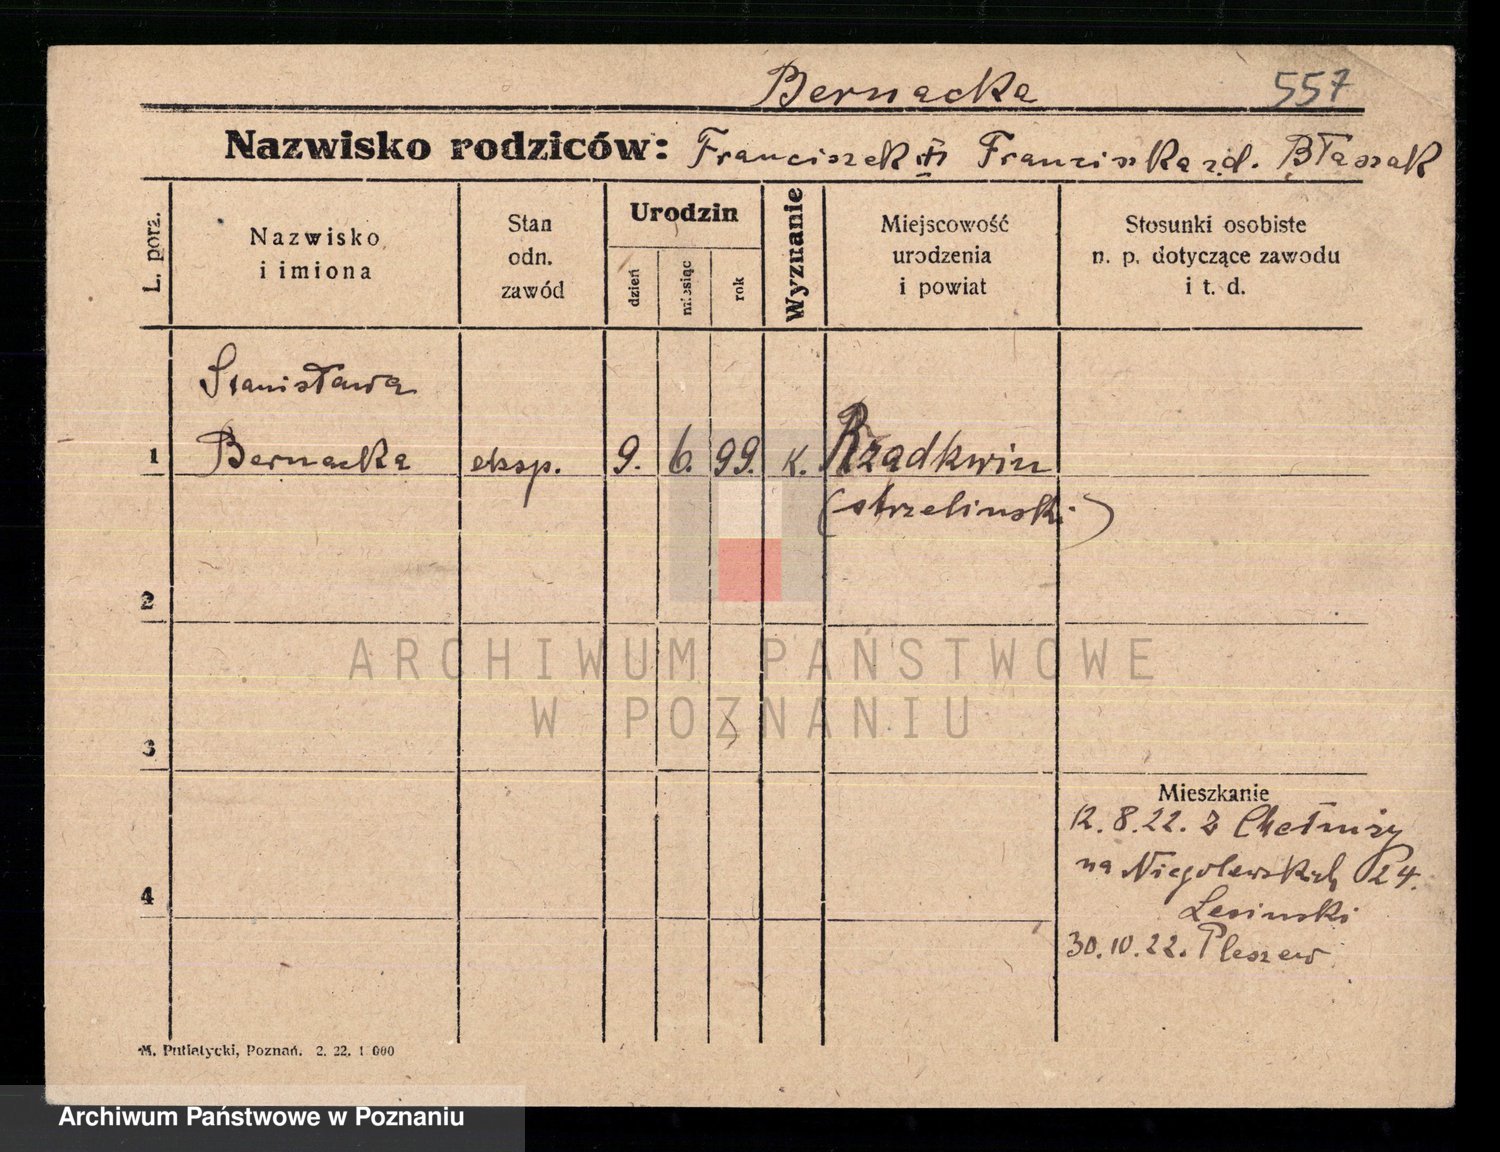 Bernacka 557
Nazwisko rodziców: Franciszek Franciszka zd. Błaszak
L. porz.
Nazwisko
i imiona
Stan
odn.
zawód
Urodzin
dzień
miesiąc
rok
Wyznanie
Miejscowość
urodzenia
i powiat
Stosunki osobiste
n. p. dotyczące zawodu
i t. d.
Stanisława
1 Bernacka eksp. 9. 6. 99. K. Rządkwin
(strzelinski)
2
3
Mieszkanie
12.8.22. z Chełmży
na Niegolewskich 24.
4
Lesinski
30.10.22. Pleszew
M. Putiatycki, Poznań. 2. 22. 1 000
ARCHIWUM PAŃSTWOWE
W POZNANIU
Archiwum Państwowe w Poznaniu